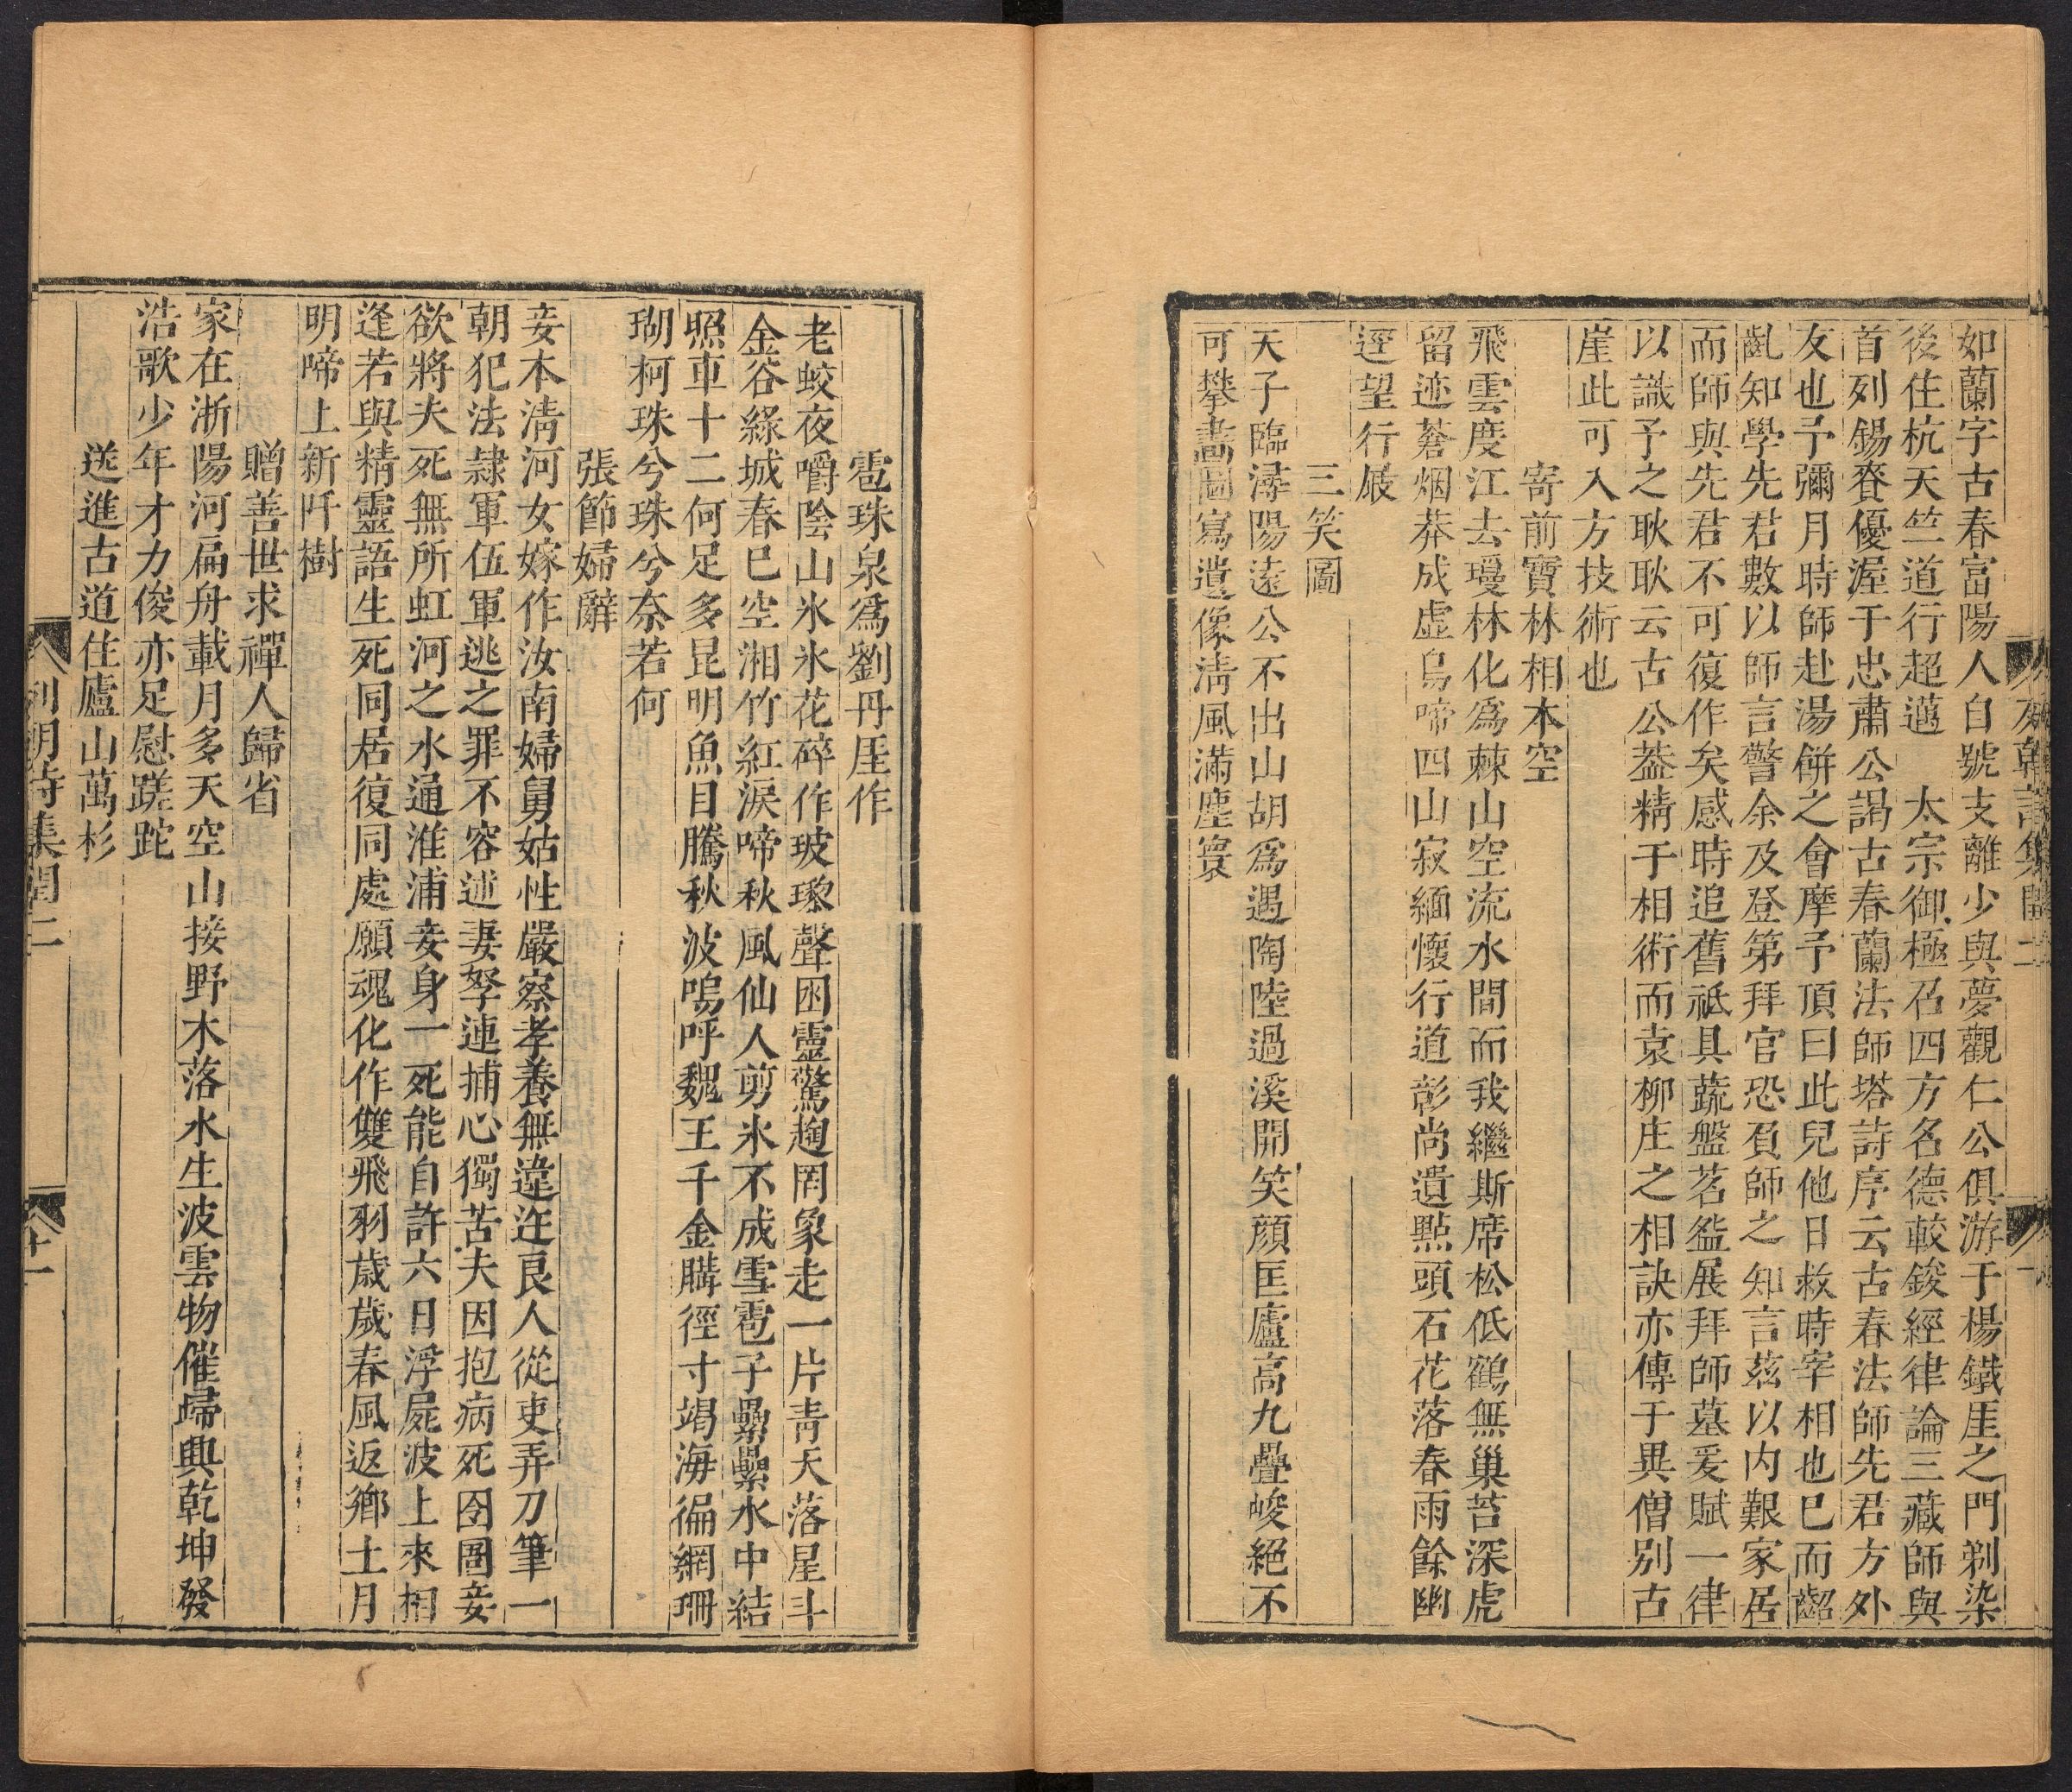 如蘭字古春富陽人自號支離少與夢觀仁公俱游于楊鐵厓之門剃染
後住杭天竺道行超邁　太宗御極召四方名德較鋟經律論三藏師與
首列錫賚優渥于忠肅公謁古春蘭法師塔詩序云古春法師先君方外
友也予彌月時師赴湯餅之會摩予頂曰此兒他日救時宰相也已而齠
齓知學先君數以師言警余及登第拜官恐負師之知言茲以内艱家居
而師與先君不可復作矣感時追舊祗具蔬盤茗盌展拜師墓爰賦一律
以識予之耿耿云古公葢精于相術而袁柳庄之相訣亦傳于異僧别古
崖此可入方技術也
寄前寶林相本空
飛雲度江去璦林化爲棘山空流水間而我繼斯席松低鶴無巢苔深虎
留迹蒼烟莽成虛烏啼四山寂緬懷行道彰尚遺點頭石花落春雨餘幽
逕望行厳
三笑圖
天子臨潯陽遠公不出山胡爲遇陶陸過溪開笑顏匡廬高九疊峻絕不
可攀畵圖寫遺像淸風滿塵寰
雹珠泉爲劉丹厓作
老蛟夜嚼陰山氷氷花碎作玻瓈聲囦靈驚趨罔象走一片靑天落星斗
金谷綠城春巳空湘竹紅淚啼秋風仙人剪氷不成雪雹子纍纍水中結
照車十二何足多昆明魚目騰秋波嗚呼魏王千金購徑寸竭海徧網珊
瑚柯珠兮珠兮奈若何
張節婦辭
妾本淸河女嫁作汝南婦舅姑性嚴察孝養無違迕良人從吏弄刀筆一
朝犯法隷軍伍軍逃之罪不容述妻孥連捕心獨苦夫因抱病死囹圄妾
欲將夫死無所虹河之水通淮浦妾身一死能自許六日浮屍波上來相
逢若與精靈語生死同居復同處願魂化作雙飛羽歲歲春風返鄉土月
明啼上新阡樹
贈善世求禪人歸省
家在浙陽河扁舟載月多天空山接野木落水生波雲物催歸興乾坤發
浩歌少年才力俊亦足慰蹉跎
送進古道住廬山萬杉
列朝詩集閏二
十一